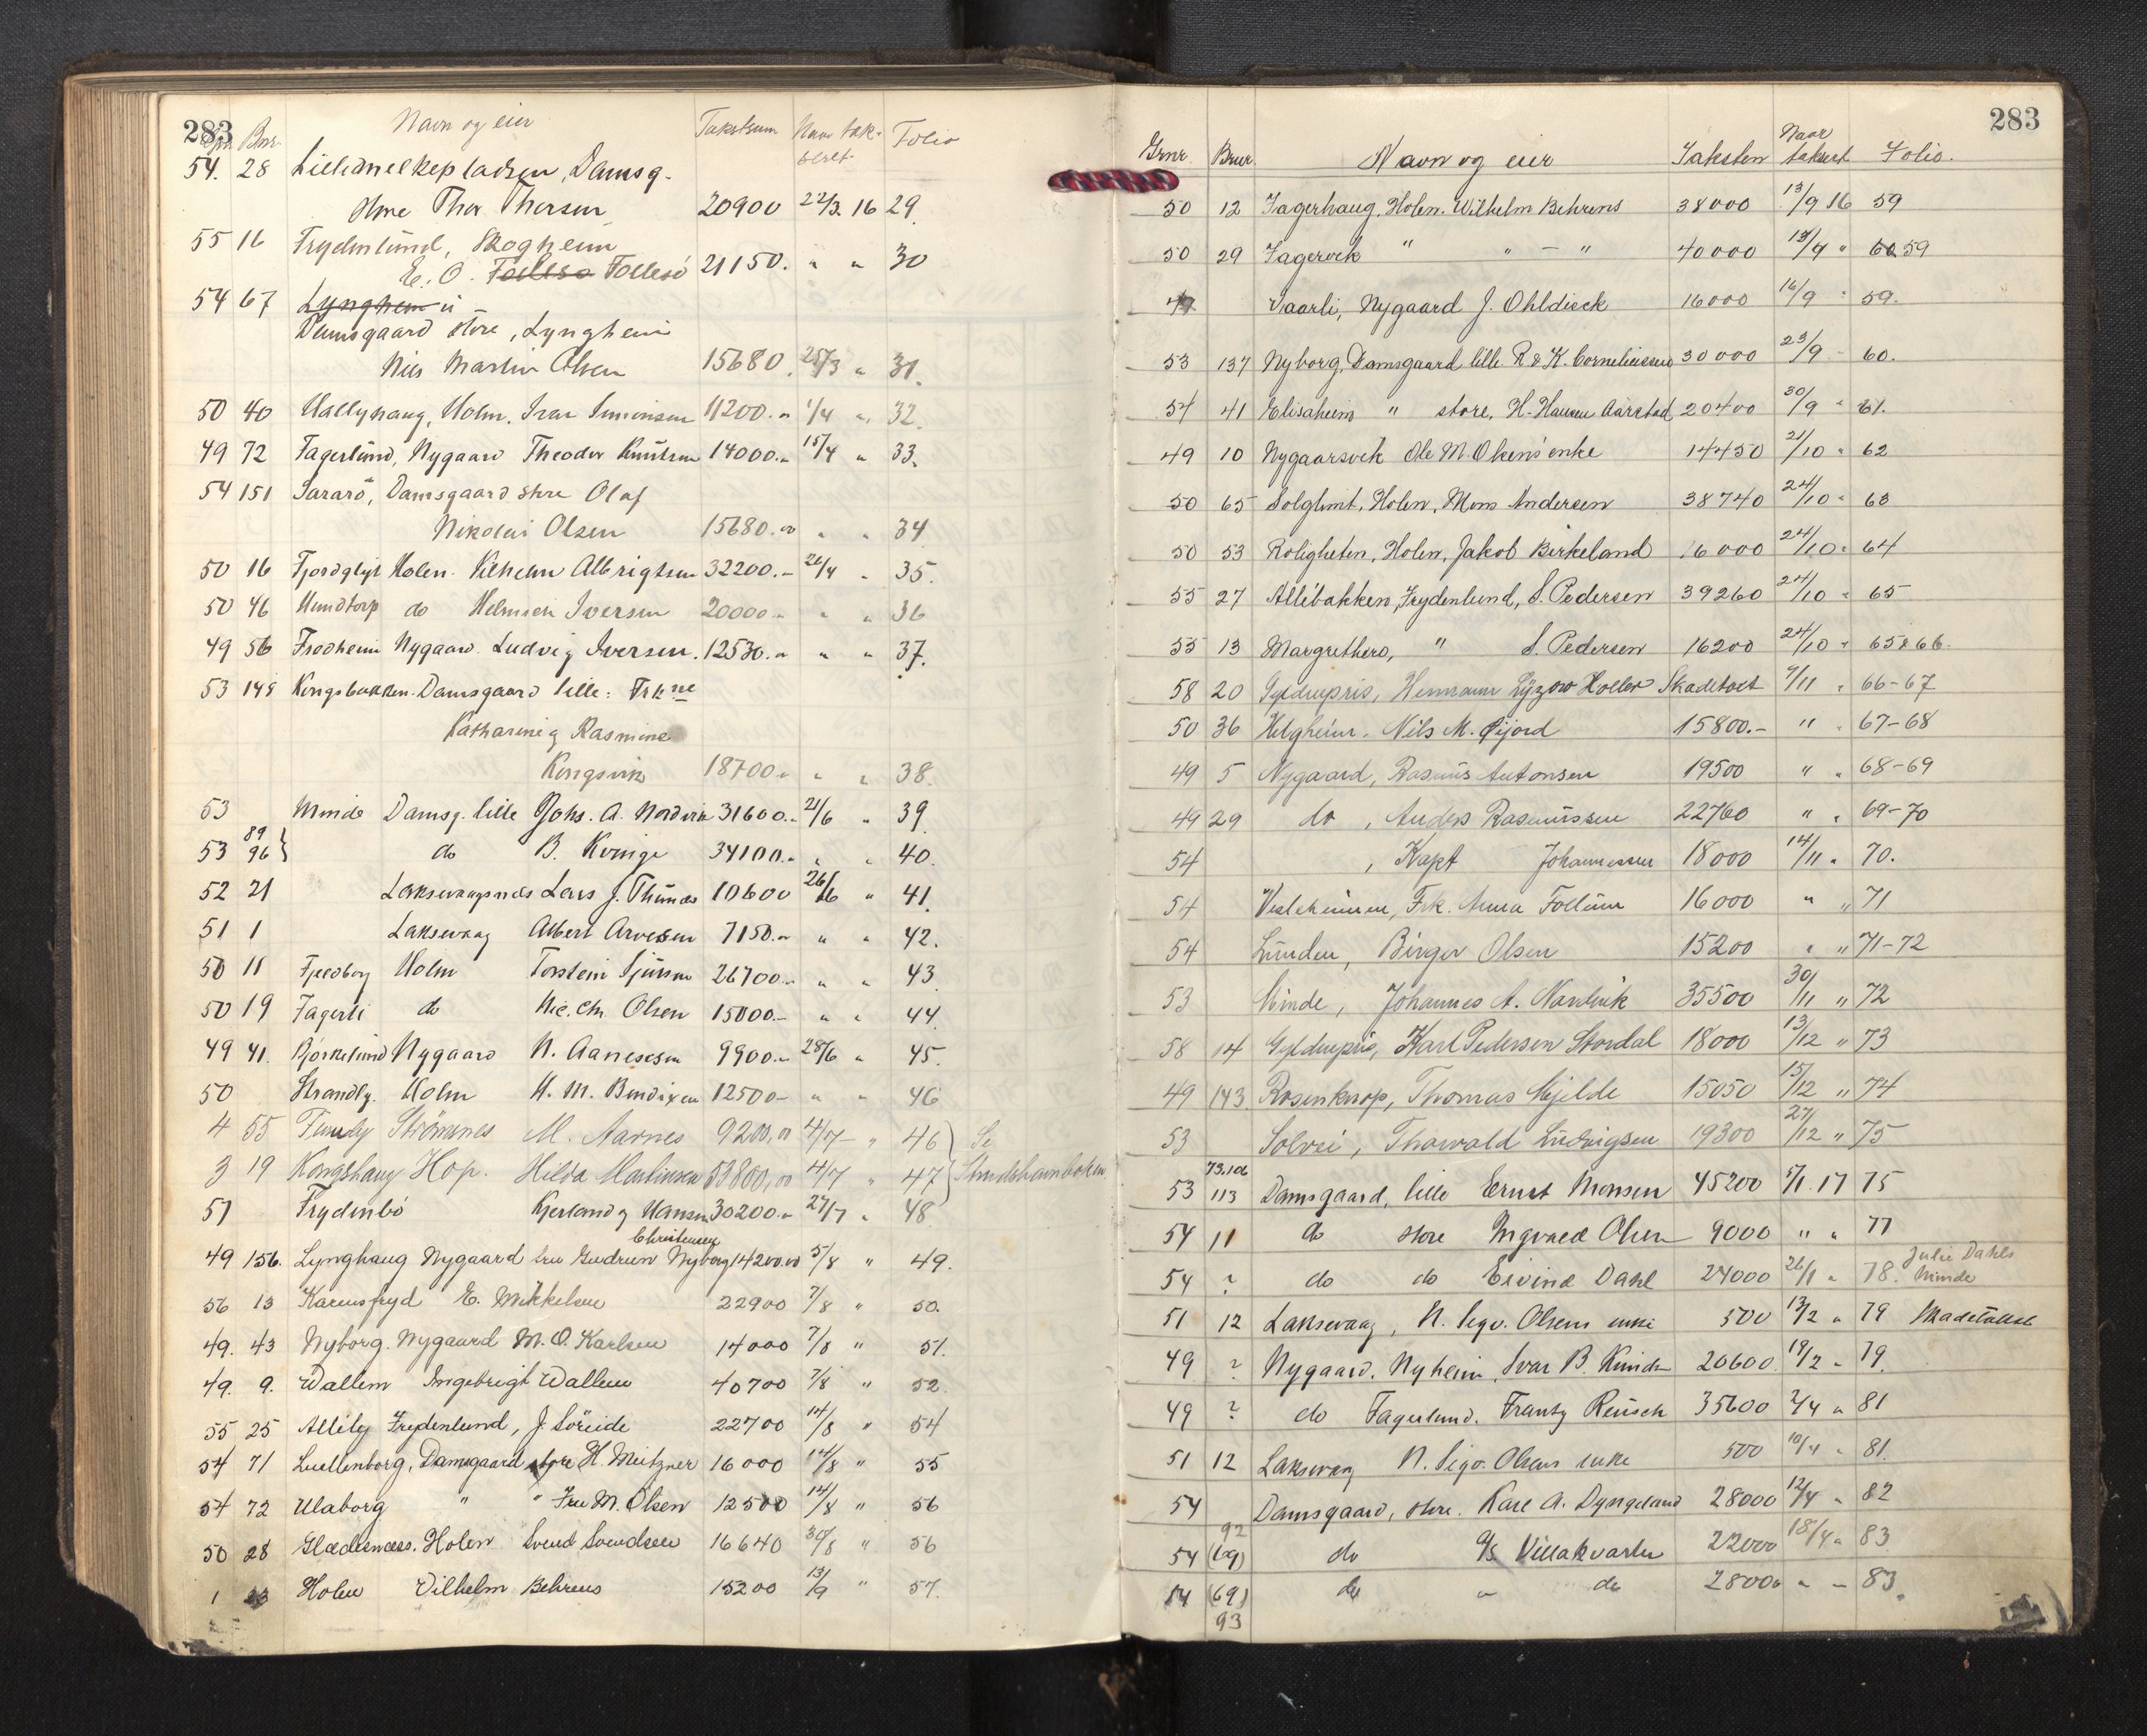 283
Gnr. Bnr. Navn og eier Takstsum Naar tak- Folio
seret
54. 28 Damsg.
Thor Thorsen 20900 22/3 16 29.
55 16 Frydenlund, Skogheim
E. O. Follesö 21150. " " 30
54 67 Lyngheim
Damsgaard store, Lyngheim
Nils Martin Olsen 15680. 25/3 " 31.
50 40 Hallyhaug, Holen, Ivar Simonsen 11200.- 1/4 " 32.
49 72 Fagerlund, Nygaard Theodor Knutsen 14000.- 15/4 " 33.
54 151 Sararo, Damsgaard store Olaf
Nikolai Olsen 15680.00 " " 34
50 16 Holen. Vilhelm Albrigtsen 32200.- 26/4 " 35.
50 46 do Helmich Iversen 20000.- " " 36
49 56 Fredheim Nygaard. Ludvig Iversen. 12530.- " " 37.
53 148 Kongsbakken. Damsgaard lille: Frkne
Katharine og Rasmine
Kongsvik 18700.- " " 38.
53 Minde Damsg. lille Johs. A. Nordvik 31600.- 21/6 " 39
53 89 96 } do B. Kvinge 34100.- " " 40.
52 21 Laksevaagsnes Lars J. Thunes 10600 26/6 " 41.
51 1 Laksevaag Albert Arvesen 7150.- " " 42.
50 11 Holen Torstein Sjursen 26700.- " " 43
50 19 Fagerli do Nic. Chr. Olsen 15000.- " " 44.
49 41. Bjørkelund Nygaard N. Aanesen 9900.- 28/6 " 45.
50 Strandly. Holen H. M. Bendixen 12500- " " 46
4 55 Strömnes M. Aarnes 9200,00 4/7- " 46 } Se
3 19 Kongshaug Hop. Hilda Martinsen 53800,00 4/7 " 47 } Strudshamnboken
51 Frydenbö Gerland og Hansen 30200.- 27/7 " 48
Christensen
49 156. Lynghaug Nygaard fru Gudrun Nyborg 14200.00 5/8 " 49.
56 13 Karensfryd E. Mikkelsen 22900 7/8 " 50.
49. 43 Nyborg. Nygaard M. O. Karlsen 14000 7/8 " 51.
49. 9. Wallem Ingebrigt Wallem 40700 7/8 " 52
55 25 Allily Frydenlund, J. Söreide 22700 14/8 " 54
54 71 Luellenborg, Damsgaard store H. Meitzner 16000 14/8 " 55
54 72 Ulaborg " " Fru M. Olsen 12500 14/8 " 56
50 28 Gladesnæss. Holen Svend Svendsen 16640 30/8 " 56
1 23 Holen Vilhelm Behrens 15200 13/9 " 57.
283
Grnr. Brnr. Navn og eier Taksten Naar takset Folio.
50 12 Fagerhaug, Holen. Wilhelm Behrens 38000 13/9 16 59
50 29 Fagervik " " - " 40000 13/9 " 59
49 Vaarli, Nygaard J. Ohldieck 16000 16/9 " 59.
53 137 Nyborg, Damsgaard lille R & K. Corneliussen 30000 23/9 - 60.
54 41 Elisaheim " store, H. Hansen Aarstad 20400 30/9 " 61.
49 10 Nygaarsvik Ole M. Okens enke 14450 21/10 " 62
50 65 Solglimt, Holen, Mons Andersen 38740 24/10 " 63
50 53 Roligheten, Holen, Jakob Birkeland 16000 24/10 " 64
55 27 Allébakken, Frydenlund, S. Pedersen 39260 24/10 " 65
55 13 Margrethero, " S. Pedersen 16200 24/10 " 65 & 66.
58 20 Gyldenpris, Hermann Lyzow Holler Skadetakst 7/11 " 66-67
50 36 Helgheim. Nils M. Gijord 15800.- " " 67-68
49 5 Nygaard, Rasmus Antonsen 19500 " " 68-69
49 29 do, Anders Rasmussen 22760 " " 69-70
54 , Kapt Johannessen 18000 14/11 " 70.
54 Vesleheimen, Frk. Anna Follum 16000 " " 71
54 Lunden, Birger Olsen 15200 " " 71-72
53 Minde, Johannes A. Nordvik 35500 30/11 " 72
58 14 Gyldenpris, Karl Pedersen Stordal 18000 13/12 " 73
49 143. Rosenknop, Thomas Mjelde 15050 15/12 " 74
53 Solvei, Thorvald Ludvigsen 19300 27/12 " 75
53 73.106 113 Damsgaard, lille Ernst Monsen 45200 5/1. 17 75
54 11 do store Ingvald Olsen 9000 " " 77
54 ? do do Eivind Dahl 24000 26/1 " 78. Julie Dahls
Minde
51 12 Laksevaag, N. Sigv. Olsens enke 500 13/2 " 79 Skadetakst
49 ? Nygaard. Nyheim, Ivar B. 20600. 19/2 " 79.
49 ? do Fagerlund. Frantz Reusch 35600 2/4 " 81
51 12 Laksevaag N. Sigv. Olsens enke 500 10/4 " 81.
54 Damsgaard, store. Karl A. Dyngeland 28000 12/4 " 82
54 92 (69) do A/s Villakvarter 22000 18/4 " 83
54 (69) 93 do " do 28000 " - 83.